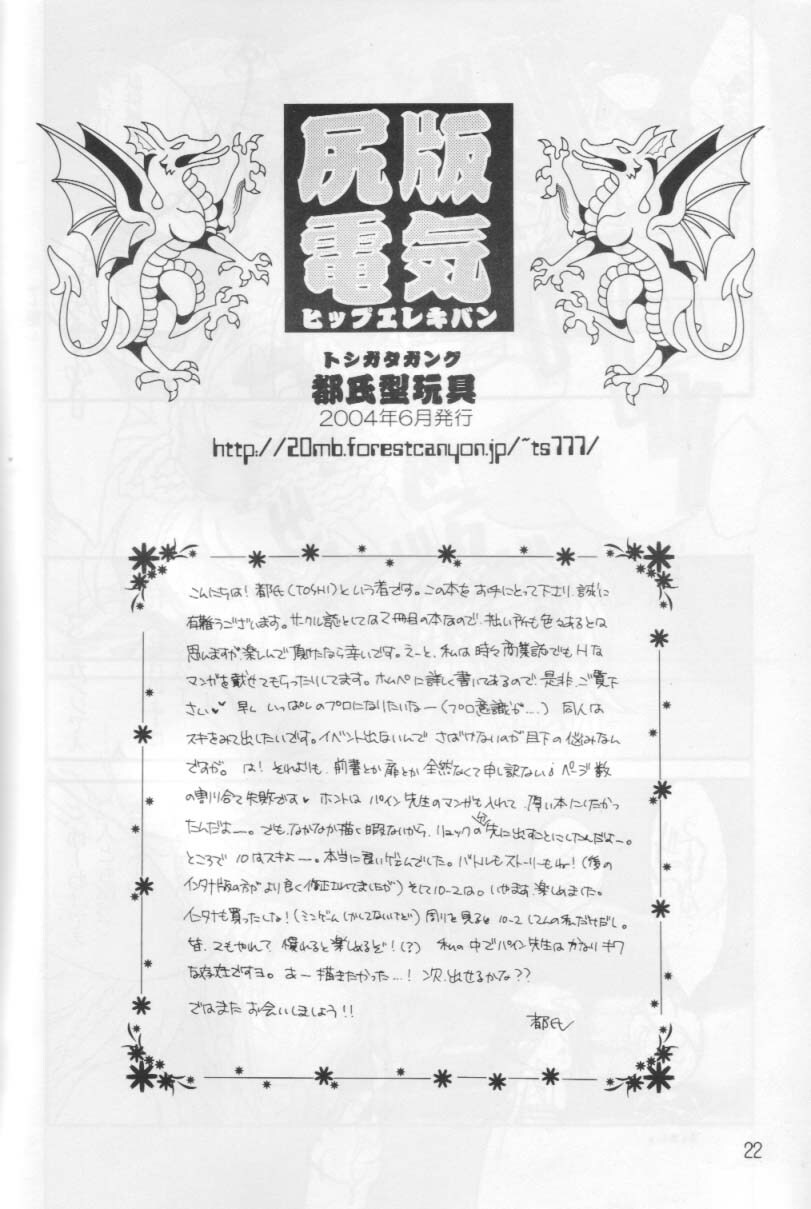 尻版
電気
ヒップエレキバン
トシガタガング
都氏型玩具
2004年6月発行
http://20mb.forestcanyon.jp/~ts777/
こんにちは！都氏(TOSHI)という者です。この本をお手にとって下さり、誠に
有難うございます。サークル誌としては2冊目の本なので、拙い所も色々あるとは
思いますが、楽しんで頂けたなら幸いです。えーと、私は時々商業誌でもHな
マンガを載せてもらったりしてます。ホムペに詳しく書いてあるので、是非、ご覧下
さい♥♥ 早く いっぱしのプロになりたいなー(プロ意識が…) 同人は
スキをみて出したいです。イベント出ないんで さばけないのが目下の悩みなん
ですが。 は！それよりも、前書とか扉とか全然なくて申し訳ない ページ数
の割り合て失敗です♥ ホントは パイン先生のマンガも入れて 厚い本にしたかっ
たんだよー。でも、なかなか描く暇ないから、リュックの先に出すことにしたんだよー。
ところで 10はスキよー。本当に良いゲームでした。バトルもストーリーもね！(後の
インタナ版の方がより良く修正されてましたが) そして10-2は。いやます 楽しめました。
インタナも買ったしな！(ミニゲームしかしてないけど) 周りを見ると 10-2 してんの私だけだし。
皆、2もやれって 慣れると楽しめるぞ！(？) 私の中でパイン先生はかなりキワ
な存在ですヨ。あー 描きたかった…！次、出せるかな？？
ではまた お会いしましょう！！
都氏
22